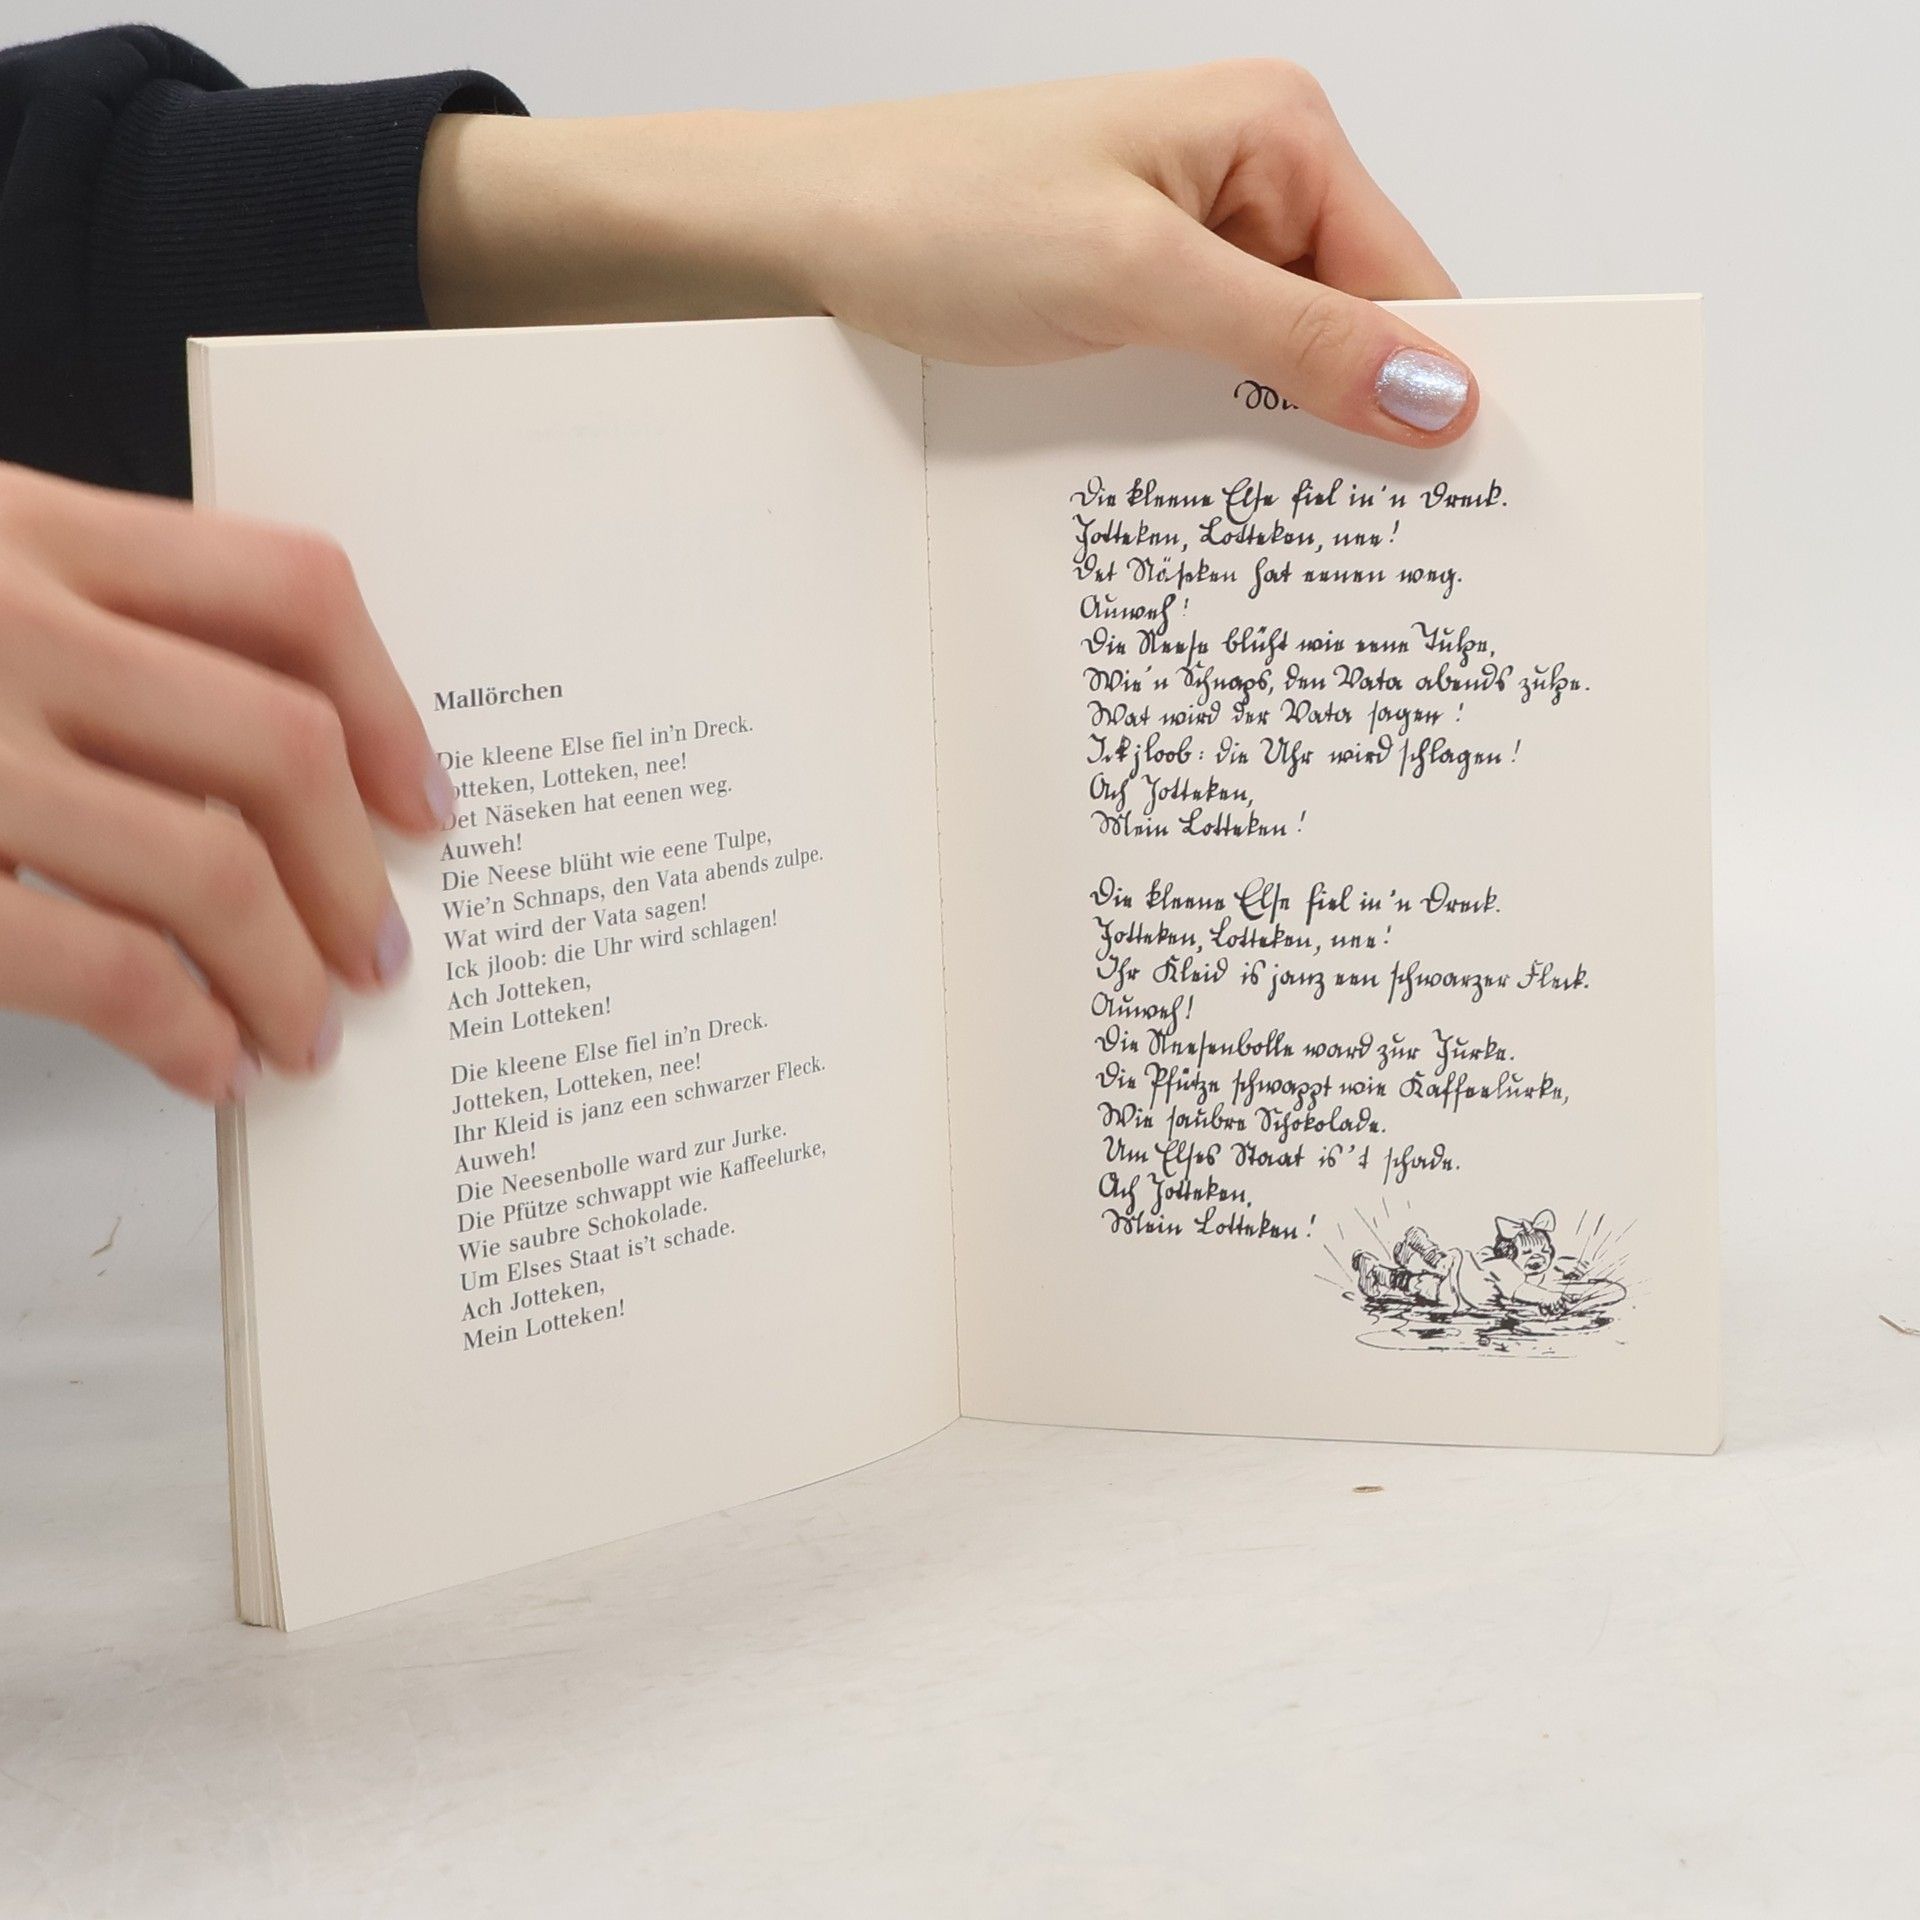 Mallörchen
Die kleene Else fiel in'n Dreck.
Jotteken, Lotteken, nee!
Det Näseken hat eenen weg.
Auweh!
Die Neese blüht wie eene Tulpe,
Wie'n Schnaps, den Vata abends zulpe.
Wat wird der Vata sagen!
Ick jloob: die Uhr wird schlagen!
Ach Jotteken,
Mein Lotteken!
Die kleene Else fiel in'n Dreck.
Jotteken, Lotteken, nee!
Ihr Kleid is janz een schwarzer Fleck.
Auweh!
Die Neesenbolle ward zur Jurke.
Die Pfütze schwappt wie Kaffeelurke,
Wie saubre Schokolade.
Um Elses Staat is't schade.
Ach Jotteken,
Mein Lotteken!
Die kleene Else fiel in'n Dreck.
Jotteken, Lotteken, nee!
Det Näseken hat eenen weg.
Auweh!
Die Neese blüht wie eene Tulpe,
Wie'n Schnaps, den Vata abends zulpe.
Wat wird der Vata sagen!
Ick jloob: die Uhr wird schlagen!
Ach Jotteken,
Mein Lotteken!
Die kleene Else fiel in'n Dreck.
Jotteken, Lotteken, nee!
Ihr Kleid is janz een schwarzer Fleck.
Auweh!
Die Neesenbolle ward zur Jurke.
Die Pfütze schwappt wie Kaffeelurke,
Wie saubre Schokolade.
Um Elses Staat is't schade.
Ach Jotteken,
Mein Lotteken!